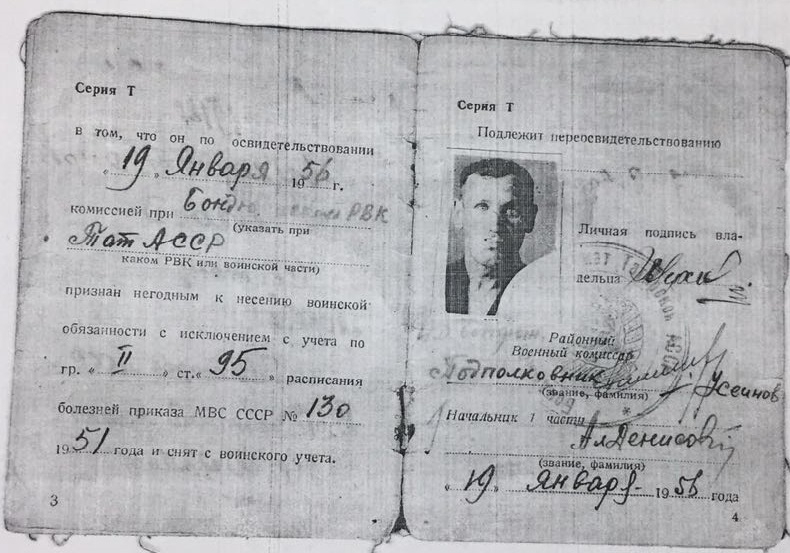 Серия Т
в том, что он по освидетельствовании
„ 19 „ Января 1956 г.
комиссией при РВК
(указать при
Тат АССР
каком РВК или воинской части)
признан негодным к несению воинской
обязанности с исключением с учета по
гр. « II » ст. « 95 » расписания
болезней приказа МВС СССР № 130
1951 года и снят с воинского учета.
3
Серия Т
Подлежит переосвидетельствованию
Личная подпись вла-
дельца
Районный
Военный комиссар
Подполковник Усеинов
(звание, фамилия)
Начальник 1 части
(звание, фамилия)
« 19 » Января 1956 года
4